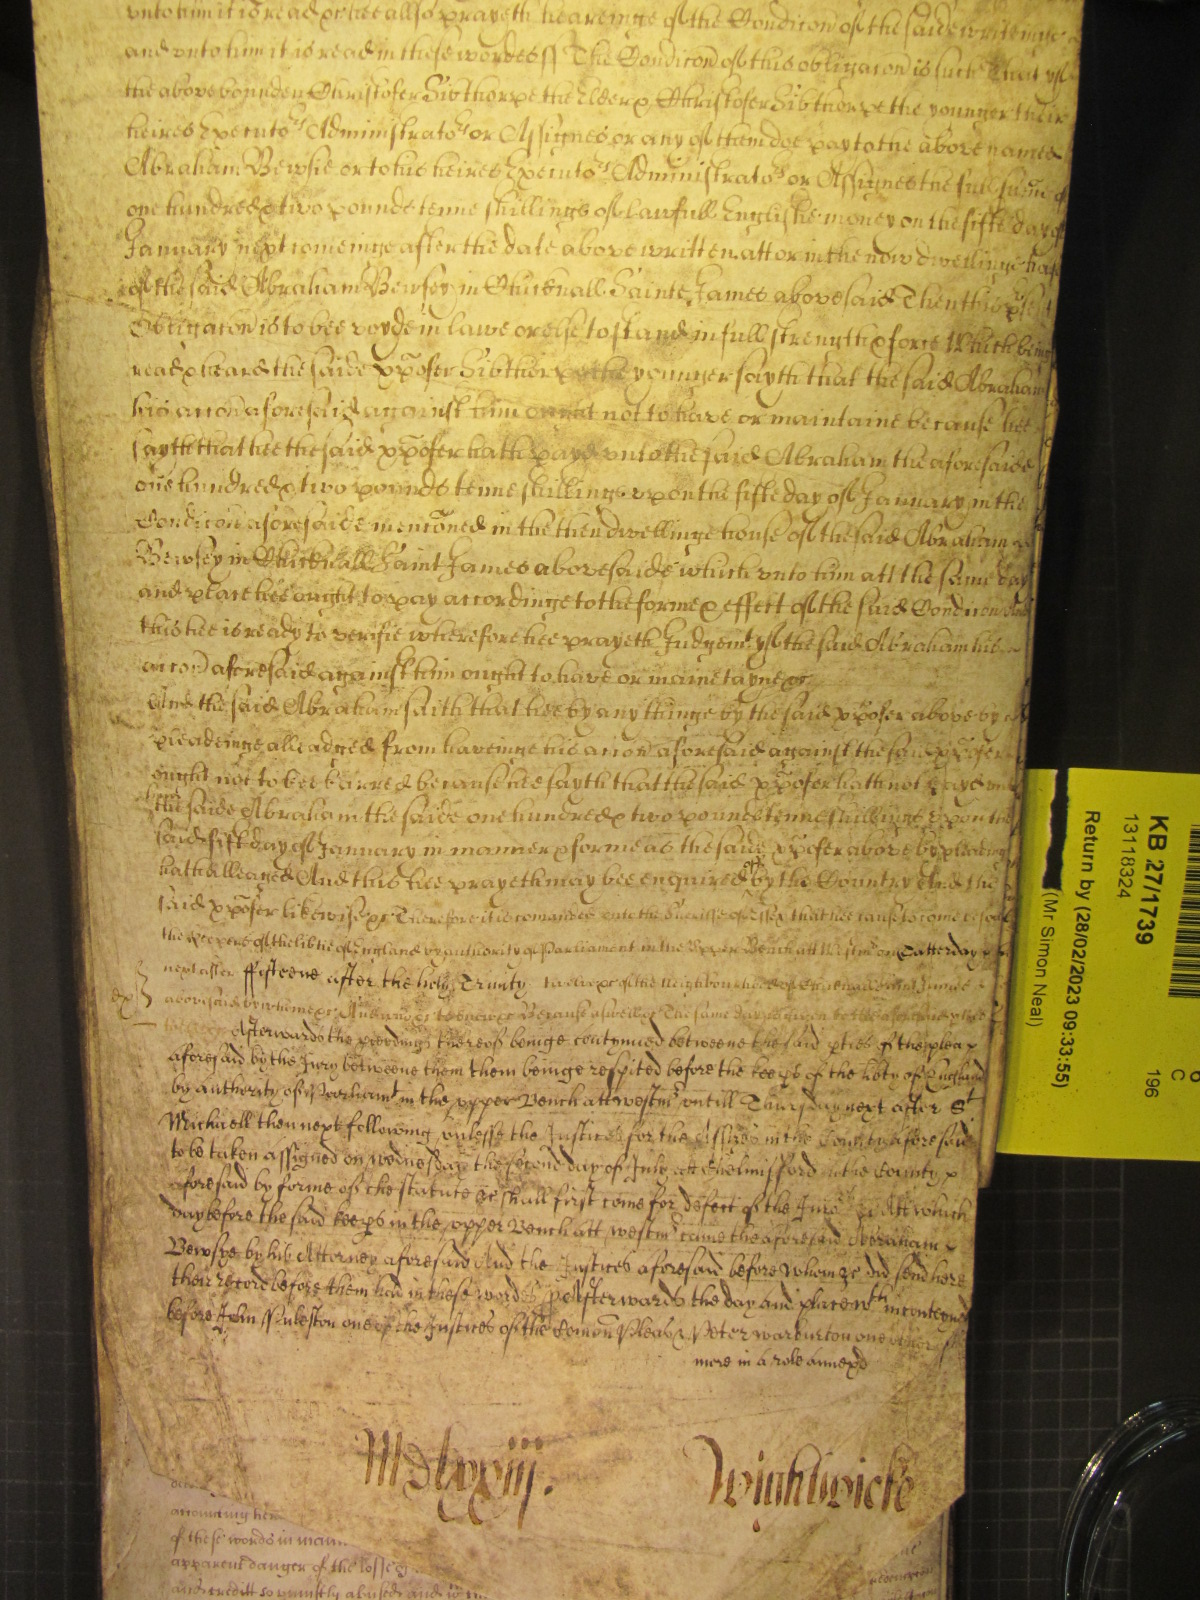 unto him it is read &c hee allso prayeth heareinge of the Condicon of the saide writeinge
and unto him it is read in these wordes ss The Condicon of this obligacon is such That yf
the above bounden Christofer Sibthorpe the Elder & Christofer Sibthorpe the younger their
heires Executors Administrators or Assignes or any of them doe pay to the above named
Abraham Bewsie or to his heires Executors Administrators or Assignes the full sum of
one hundred & two pounds tenne shillings of lawfull Englishe money on the fifte day of
January next comeinge after the date above written att or in the now dwellinge house
of the said Abraham Bewsey in Chicknall Sainte James abovesaid Then this present
Obligacon is to bee voyde in lawe or else to stand in full strength & force Which being
read & heard the saide Xpofer Sibthorpe the younger sayth that the said Abraham
his accon aforesaid against him ought not to have or maintaine because hee
sayth that hee the said Xpofer hath payd unto the said Abraham the aforesaide
one hundred & two pounds tenne shillings upon the fifte day of January in the
Condicon aforesaide menconed in the then dwellinge house of the said Abraham
Bewsey in Chicknall Saint James abovesaide which unto him att the same day
and place hee ought to pay accordinge to the forme & effect of the said Condicon And
this hee is ready to verifie wherefore hee prayeth Judgemt yf the said Abraham his
accon aforesaid against him ought to have or mainetayne &c
And the said Abraham saith that hee by any thinge by the said Xpofer above by
pleadeinge alleadged from haveinge his accon aforesaid against the said Xpofer
ought not to bee barred because hee sayth that the said Xpofer hath not payd unto
the saide Abraham the saide one hundred & two pounds tenne shillings upon the
said fift day of January in manner & forme as the saide Xpofer above by pleading
hath alleaged And this hee prayeth may bee enquired of by the Country And the
said Xpofer likewise &c Therefore it is comanded unto the Sheriffe of Essex that hee cause to come before
the keepers of the libtie of England by authority of Parliament in the Upper Bench att Westm on Satterday
next after fifteene after the holy Trinity twelve &c of the neighbourhood of Chicknall Saint James
abovesaid by whome &c And who &c to recognize &c Because aswell &c The same day is given to the
Afterwards the pceedings thereof beinge contynued betweene the said pties of the plea
aforesaid by the Jury betweene them them beinge respited before the keeps of the libty of England
by authority of Parliamt in the upper Bench att westmr untill Thursday next after St
Michaell then next following unlesse the Justices for the Assizes in the County aforesaid
to be taken assigned on wednesday the second day of July att Chelmisford in the County
aforesaid by forme of the statute &c shall first come for defect of the Jurors &c Att which
day before the said keeps in the upper Bench att westmr came the aforesaid Abraham
Bewsye by his Attorney aforesaid And the Justices aforesaid before whom &c did send here
their record before them had in these words ss Afterwards the day and place wthin conteyned
before John Puleston one of the Justices of the Comon Pleas & Peter warburton one other
more in a role annexd
Mdlxxiij.
Wightwicke
accompting
of these words in
apparent danger of the losse
and creditt so unjustly abused and
KB 27/1739
13118324
Return by (28/02/2023 09:33:55)
(Mr Simon Neal)
196
C